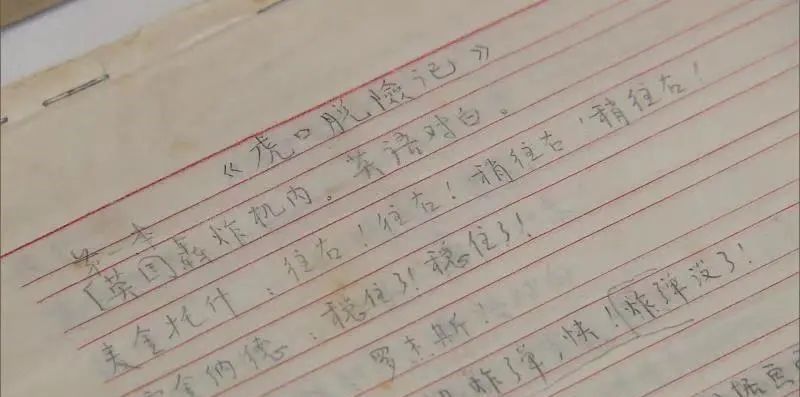 《虎口脱險记》
第一本
[英国]轰炸机内。英语对白。
美金托什：往右！往右！稍往右，稍往右！
金纳德：稳住了！稳住了！
罗杰斯！
炸弹，快！炸弹没了！